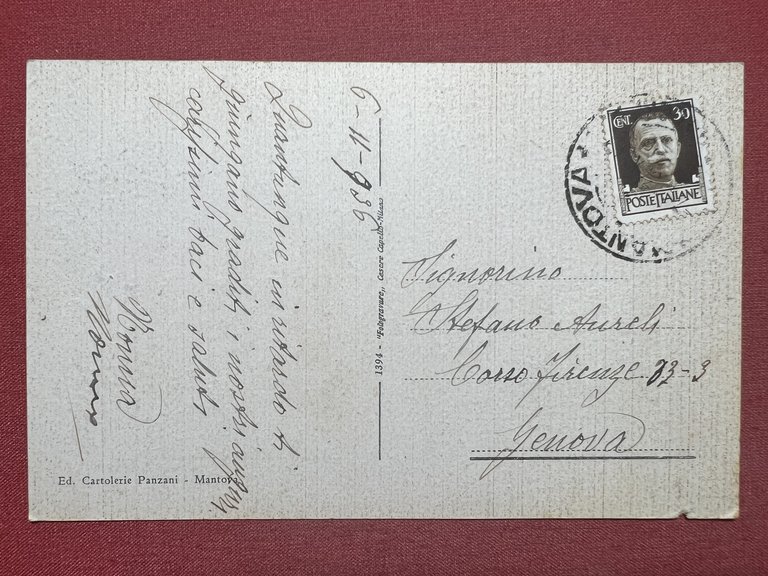 6-11-936
Quantunque in ritardo ti
giungano graditi i nostri auguri
affettuosi baci e saluti
Nonna
Nonno
1394 - "Fotogravure" Cesare Capello-Milano
CENT. 30
POSTE ITALIANE
MANTOVA
Signorino
Stefano Aureli
Corso Firenze 33-3
Genova
Ed. Cartolerie Panzani - Mantova